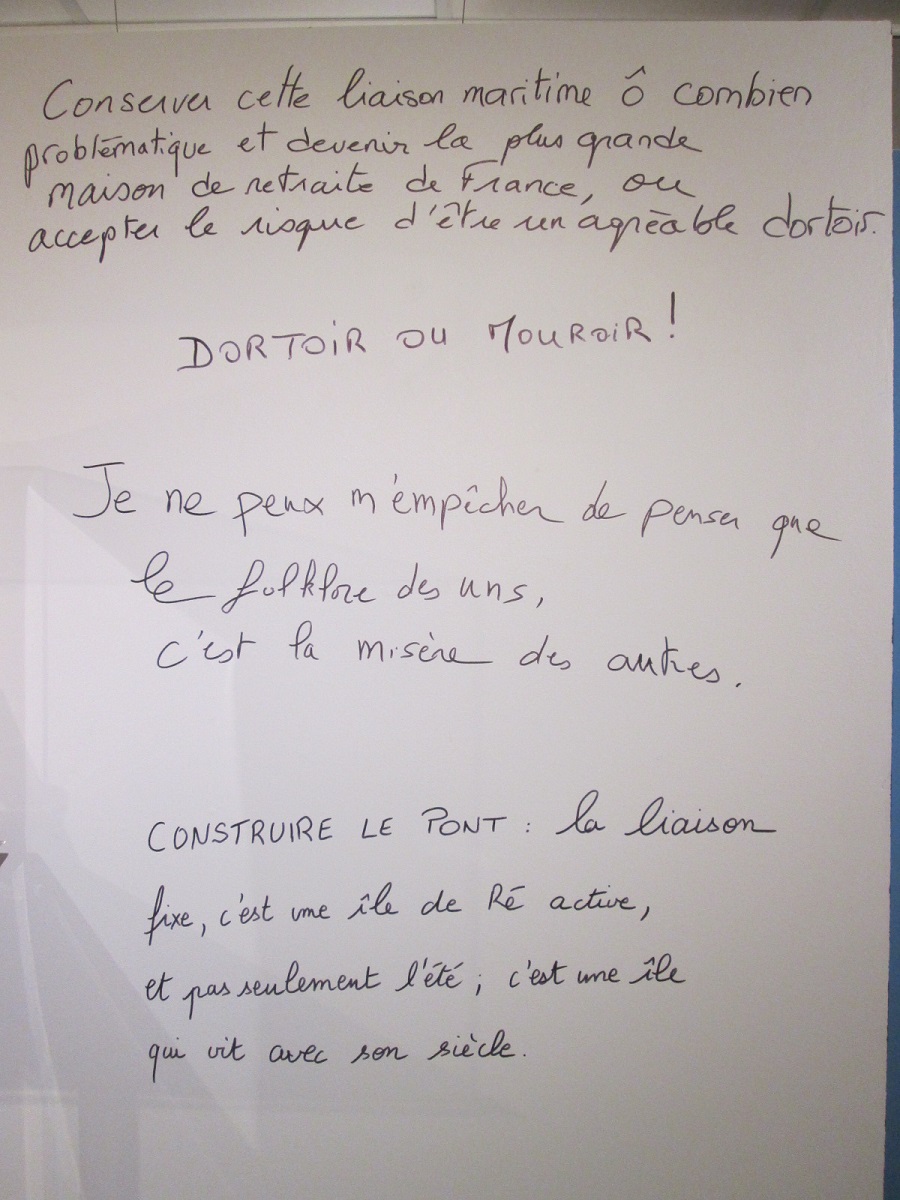 Conserver cette liaison maritime ô combien
problématique et devenir la plus grande
maison de retraite de France, ou
accepter le risque d'être un agréable dortoir.
DORTOIR OU MOUROIR !
Je ne peux m'empêcher de penser que
le folklore des uns,
c'est la misère des autres.
CONSTRUIRE LE PONT : la liaison
fixe, c'est une île de Ré active,
et pas seulement l'été ; c'est une île
qui vit avec son siècle.